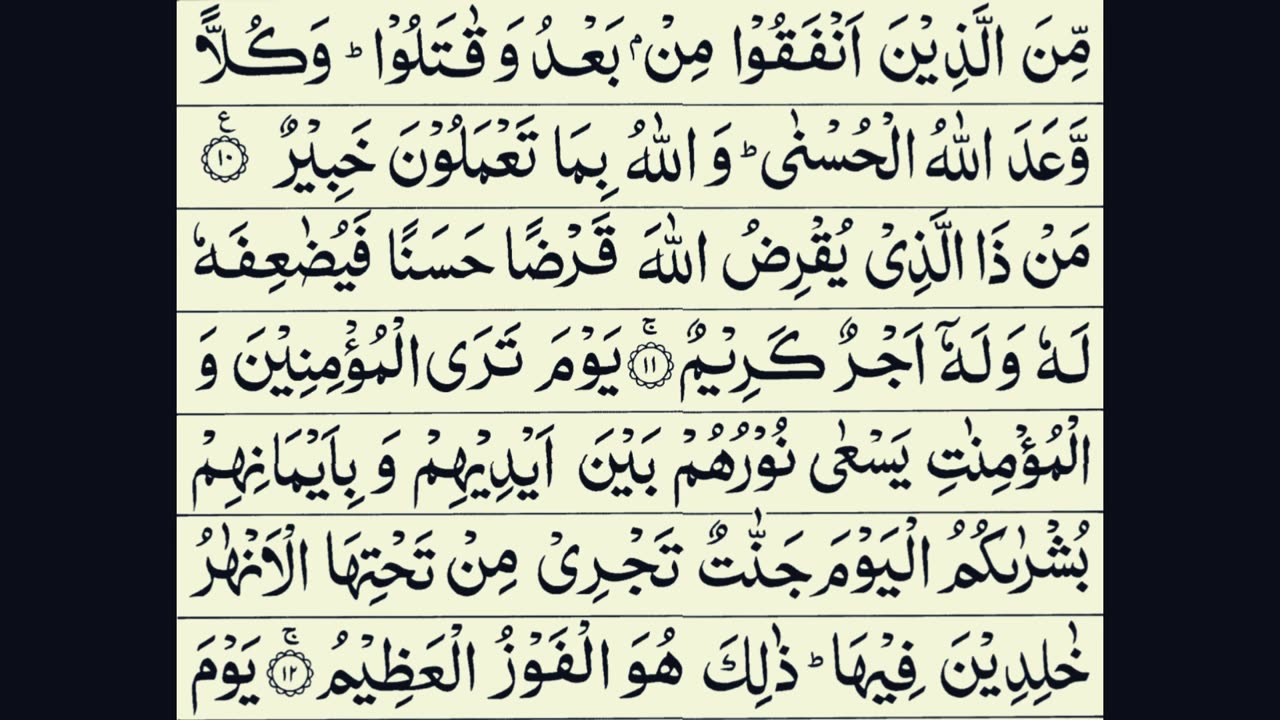 مِّنَ الَّذِيْنَ اَنْفَقُوْا مِنْۢ بَعْدُ وَ قٰتَلُوْا ؕ وَ كُلًّا
وَّعَدَ اللّٰهُ الْحُسْنٰى ؕ وَ اللّٰهُ بِمَا تَعْمَلُوْنَ خَبِيْرٌ ۧ ۝۱۰
مَنْ ذَا الَّذِيْ يُقْرِضُ اللّٰهَ قَرْضًا حَسَنًا فَيُضٰعِفَهٗ
لَهٗ وَ لَهٗۤ اَجْرٌ كَرِيْمٌ ۚ ۝۱۱ يَوْمَ تَرَى الْمُؤْمِنِيْنَ وَ
الْمُؤْمِنٰتِ يَسْعٰى نُوْرُهُمْ بَيْنَ اَيْدِيْهِمْ وَ بِاَيْمَانِهِمْ
بُشْرٰىكُمُ الْيَوْمَ جَنّٰتٌ تَجْرِيْ مِنْ تَحْتِهَا الْاَنْهٰرُ
خٰلِدِيْنَ فِيْهَا ؕ ذٰلِكَ هُوَ الْفَوْزُ الْعَظِيْمُ ۚ ۝۱۲ يَوْمَ